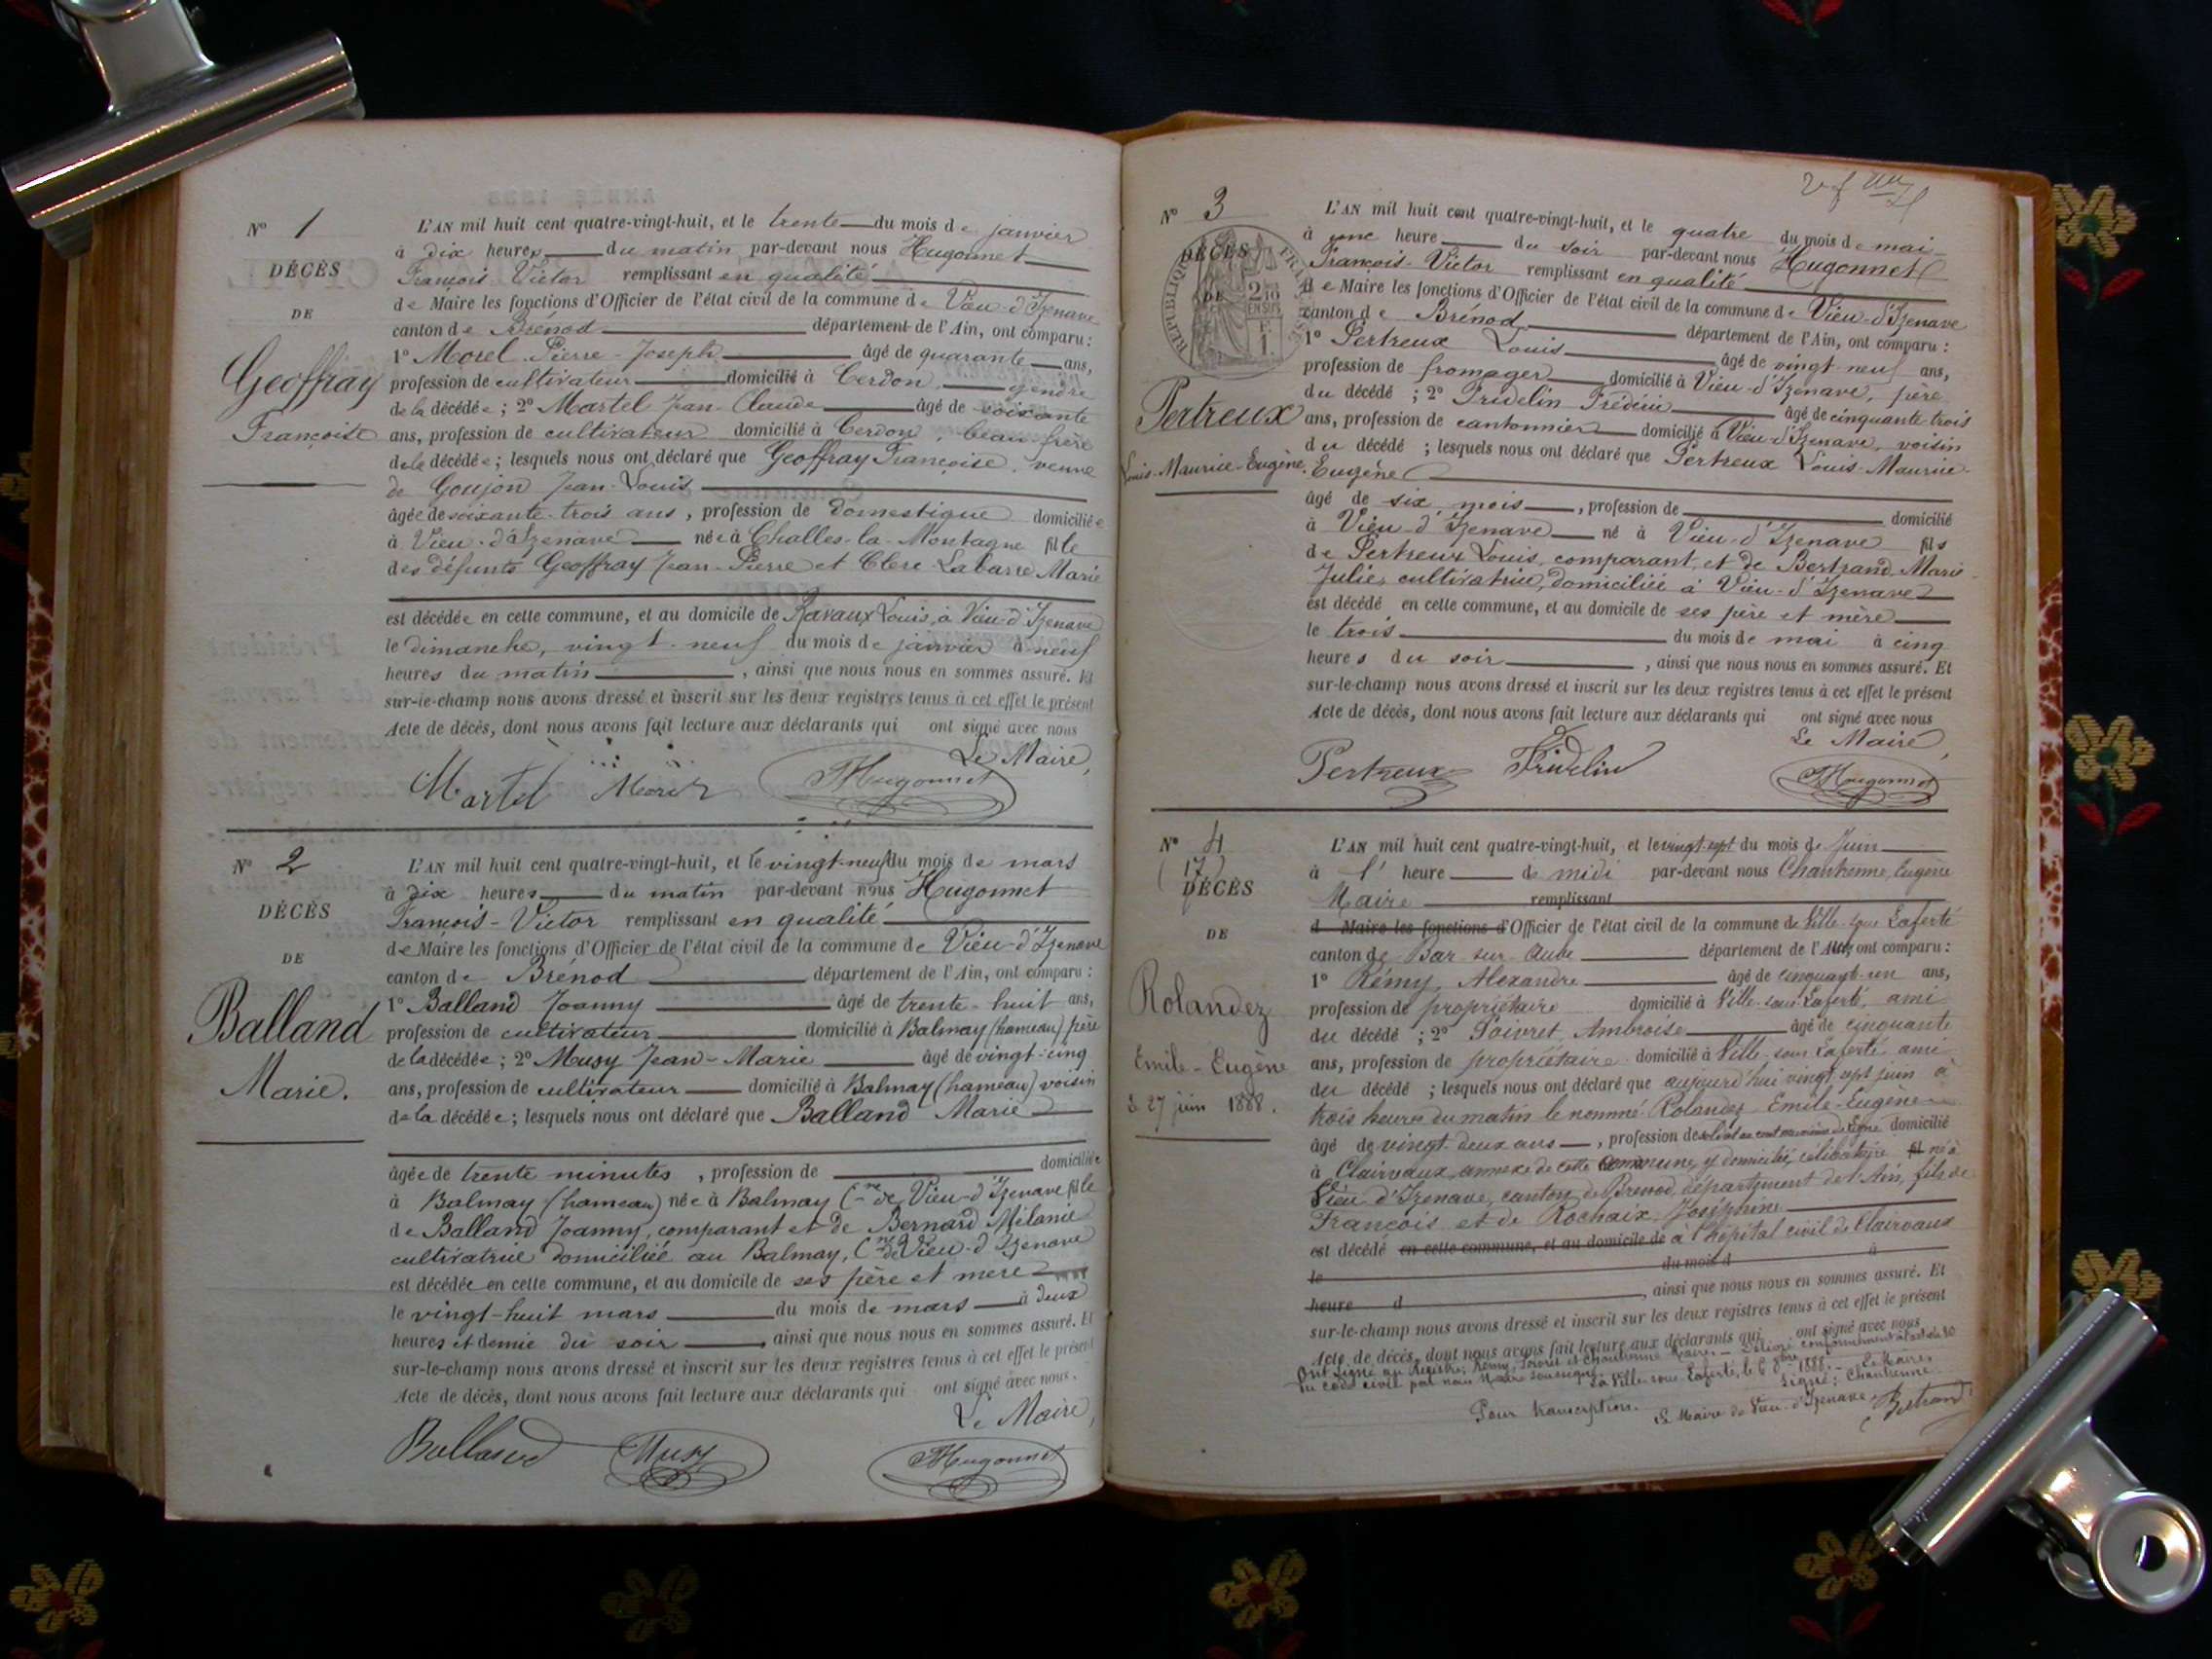 N° 1
DÉCÈS
DE
Geoffray
Françoise
L'AN mil huit cent quatre-vingt-huit, et le trente du mois de janvier
à dix heures du matin par-devant nous Hugonnet
François Victor remplissant en qualité
de Maire les fonctions d'Officier de l'état civil de la commune de Vieu-d'Izenave
canton de Brénod département de l'Ain, ont comparu :
1° Morel Pierre-Joseph âgé de quarante ans,
profession de cultivateur domicilié à Cerdon gendre
de la décédée ; 2° Martel Jean-Claude âgé de soixante
ans, profession de cultivateur domicilié à Cerdon, beau frère
de la décédée ; lesquels nous ont déclaré que Geoffray Françoise, veuve
de Goujon Jean-Louis
âgée de soixante-trois ans, profession de domestique domiciliée
à Vieu-d'Izenave née à Challes-la-Montagne fille
des défunts Geoffray Jean-Pierre et Clerc-Labarre Marie
est décédée en cette commune, et au domicile de Ravaux Louis, à Vieu-d'Izenave
le dimanche, vingt-neuf du mois de janvier à neuf
heures du matin, ainsi que nous nous en sommes assuré. Et
sur-le-champ nous avons dressé et inscrit sur les deux registres tenus à cet effet le présent
Acte de décès, dont nous avons fait lecture aux déclarants qui ont signé avec nous
Le Maire,
Martel Morel FHugonnet
N° 2
DÉCÈS
DE
Balland
Marie.
L'AN mil huit cent quatre-vingt-huit, et le vingt-neuf du mois de mars
à dix heures du matin par-devant nous Hugonnet
François-Victor remplissant en qualité
de Maire les fonctions d'Officier de l'état civil de la commune de Vieu-d'Izenave
canton de Brénod département de l'Ain, ont comparu :
1° Balland Joanny âgé de trente-huit ans,
profession de cultivateur domicilié à Balmay (hameau) père
de la décédée ; 2° Musy Jean-Marie âgé de vingt-cinq
ans, profession de cultivateur domicilié à Balmay (hameau) voisin
de la décédée ; lesquels nous ont déclaré que Balland Marie
âgée de trente minutes, profession de domiciliée
à Balmay (hameau) née à Balmay (cne de Vieu-d'Izenave fille
de Balland Joanny, comparant et de Bernard Mélanie
cultivatrice domiciliée au Balmay, (cne de Vieu-d'Izenave
est décédée en cette commune, et au domicile de ses père et mère
le vingt-huit mars du mois de mars à deux
heures et demie du soir, ainsi que nous nous en sommes assuré. Et
sur-le-champ nous avons dressé et inscrit sur les deux registres tenus à cet effet le présent
Acte de décès, dont nous avons fait lecture aux déclarants qui ont signé avec nous.
Le Maire,
Balland Musy FHugonnet
N° 3
DÉCÈS
DE
RÉPUBLIQUE FRANÇAISE
Pertreux
Louis-Maurice-Eugène.
L'AN mil huit cent quatre-vingt-huit, et le quatre du mois de mai
à une heure du soir par-devant nous Hugonnet
François-Victor remplissant en qualité
de Maire les fonctions d'Officier de l'état civil de la commune de Vieu-d'Izenave
canton de Brénod département de l'Ain, ont comparu :
1° Pertreux Louis âgé de vingt-neuf ans,
profession de fromager domicilié à Vieu-d'Izenave, père
du décédé ; 2° Fridelin Frédéric âgé de cinquante-trois
ans, profession de cantonnier domicilié à Vieu-d'Izenave, voisin
du décédé ; lesquels nous ont déclaré que Pertreux Louis-Maurice-
Eugène
âgé de six mois, profession de domicilié
à Vieu-d'Izenave né à Vieu-d'Izenave fils
de Pertreux Louis, comparant, et de Bertrand Marie-
Julie, cultivatrice, domiciliée à Vieu-d'Izenave
est décédé en cette commune, et au domicile de ses père et mère
le trois du mois de mai à cinq
heures du soir, ainsi que nous nous en sommes assuré. Et
sur-le-champ nous avons dressé et inscrit sur les deux registres tenus à cet effet le présent
Acte de décès, dont nous avons fait lecture aux déclarants qui ont signé avec nous
Le Maire,
Pertreux Fridelin FHugonnet
N° 4
(17)
DÉCÈS
DE
Rolandez
Emile-Eugène
27 juin 1888.
L'AN mil huit cent quatre-vingt-huit, et le vingt-sept du mois de Juin
à l' heure de midi par-devant nous Chantenne, Eugène
Maire remplissant
d Maire les fonctions d'Officier de l'état civil de la commune de Ville-sous-Laferté
canton de Bar-sur-Aube département de l'Aube, ont comparu :
1° Rémy, Alexandre âgé de cinquante-un ans,
profession de propriétaire domicilié à Ville-sous-Laferté, ami
du décédé ; 2° Poivret, Ambroise âgé de cinquante
ans, profession de propriétaire domicilié à Ville-sous-Laferté ami
du décédé ; lesquels nous ont déclaré que aujourd'hui vingt-sept juin à
trois heures du matin le nommé Rolandez Emile-Eugène
âgé de vingt-deux ans, profession de soldat au domicilié
à Clairvaux, annexe de cette commune, y domicilié, célibataire fil né à
Vieu-d'Izenave, canton de Brenod, département de l'Ain, fils de
François et de Rochaix Joséphine
est décédé en cette commune, et au domicile de à l'hôpital civil de Clairvaux
le du mois d à
heure d, ainsi que nous nous en sommes assuré. Et
sur-le-champ nous avons dressé et inscrit sur les deux registres tenus à cet effet le présent
Acte de décès, dont nous avons fait lecture aux déclarants qui ont signé avec nous
Ont signé au Registre: Rémy, Poivret et Chantenne Maire. — Délivré conformément à l'art. du 80
du code civil par nous Maire soussigné. La Ville-sous-Laferté, le 6 8bre 1888. — Le Maire,
Signé: Chantenne.
Pour transcription. Le Maire de Vieu-d'Izenave Bertrand